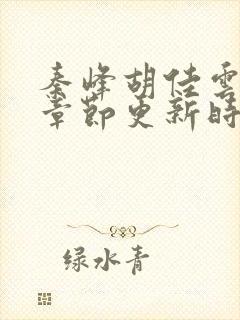 秦峰胡佳雲
章節更新時
绿水青